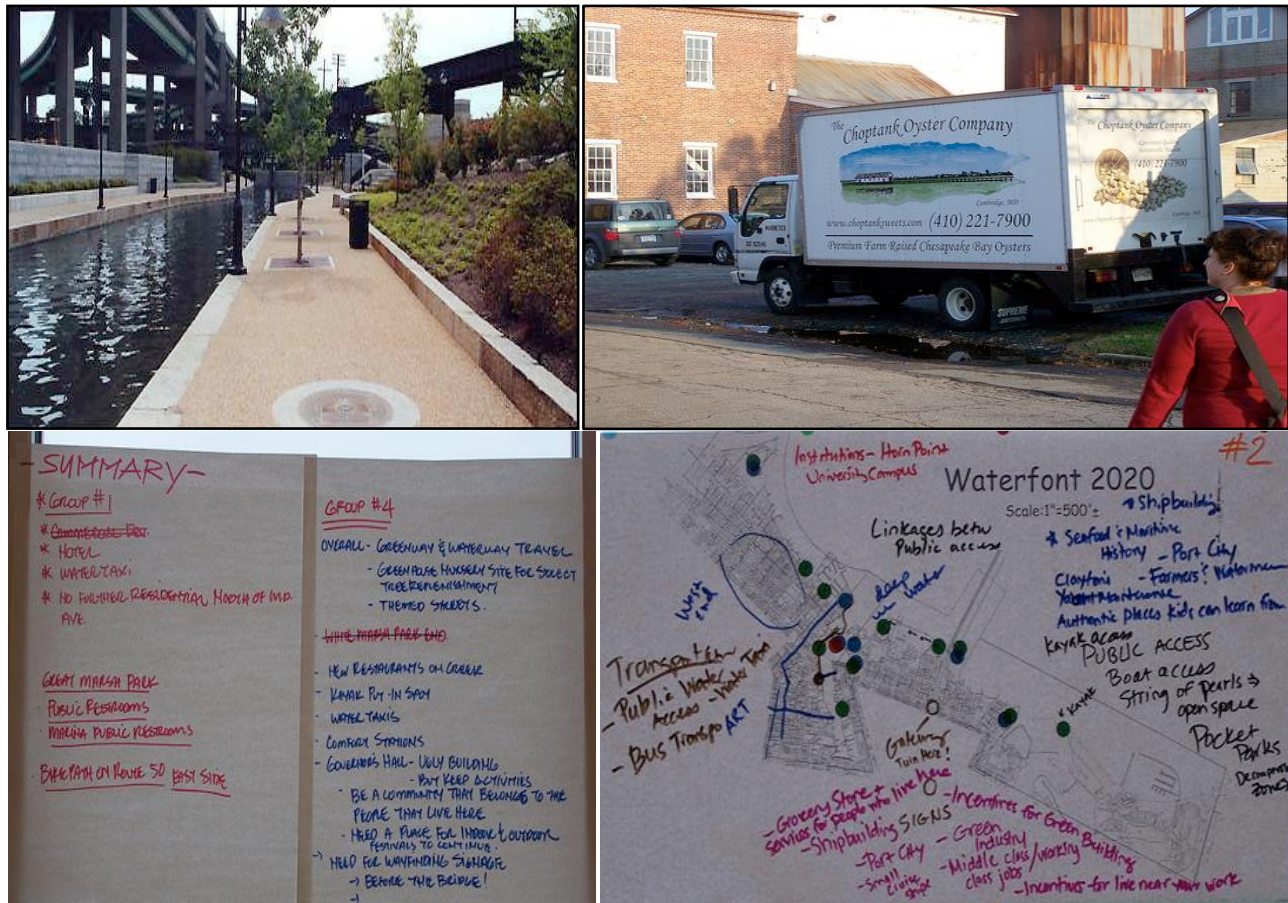 The Choptank Oyster Company
Cambridge, MD
www.choptanksweets.com (410) 221-7900
Premium Farm Raised Chesapeake Bay Oysters
The Choptank Oyster Company
(410) 221-7900
Cambridge, MD
SUPREME
-SUMMARY-
* GROUP #1
* HOTEL
* WATER TAXI
* NO FURTHER RESIDENTIAL NORTH OF MD.
AVE.
GREAT MARSH PARK
- PUBLIC RESTROOMS
- MARINA PUBLIC RESTROOMS
BIKEPATH ON ROUTE 50 EAST SIDE
GROUP #4
OVERALL - GREENWAY & WATERWAY TRAVEL
- GREENHOUSE NURSERY SITE FOR SELECT
TREE REPLENISHMENT
- THEMED STREETS.
- WHITE MARSH PARK END
- NEW RESTAURANTS ON CREEK
- KAYAK PUT-IN SPOT
- WATER TAXIS
- COMFORT STATIONS
- GOVERNORS HALL - UGLY BUILDING
- BUT KEEP ACTIVITIES
- BE A COMMUNITY THAT BELONGS TO THE
PEOPLE THAT LIVE HERE
- NEED A PLACE FOR INDOOR & OUTDOOR
FESTIVALS TO CONTINUE.
-> NEED FOR WAYFINDING SIGNAGE
-> BEFORE THE BRIDGE!
#2
Institutions - Horn Point
University Campus
Waterfont 2020
Scale:1"=500'±
Shipbuilding
Linkages betw
Public access
* Seafood & Maritime
History - Port City
Clayton's - Farmers & Watermen
Yacht Maintenance
Authentic places kids can learn from
West
End
deep
water
Kayak access
PUBLIC ACCESS
Boat access
String of pearls ->
open space
Kayak
Pocket
Parks
Zones
Transportation
- Public Water
Access - Water Taxi
- Bus Transpo ART
Gateway
- Grocery Store +
services for people who live here
- Incentives for Green Building
- Shipbuilding SIGNS
- Port City
- Small
cruise
ships
- Green
Industry
- Middle class/working
class jobs
- Incentives for live near your work